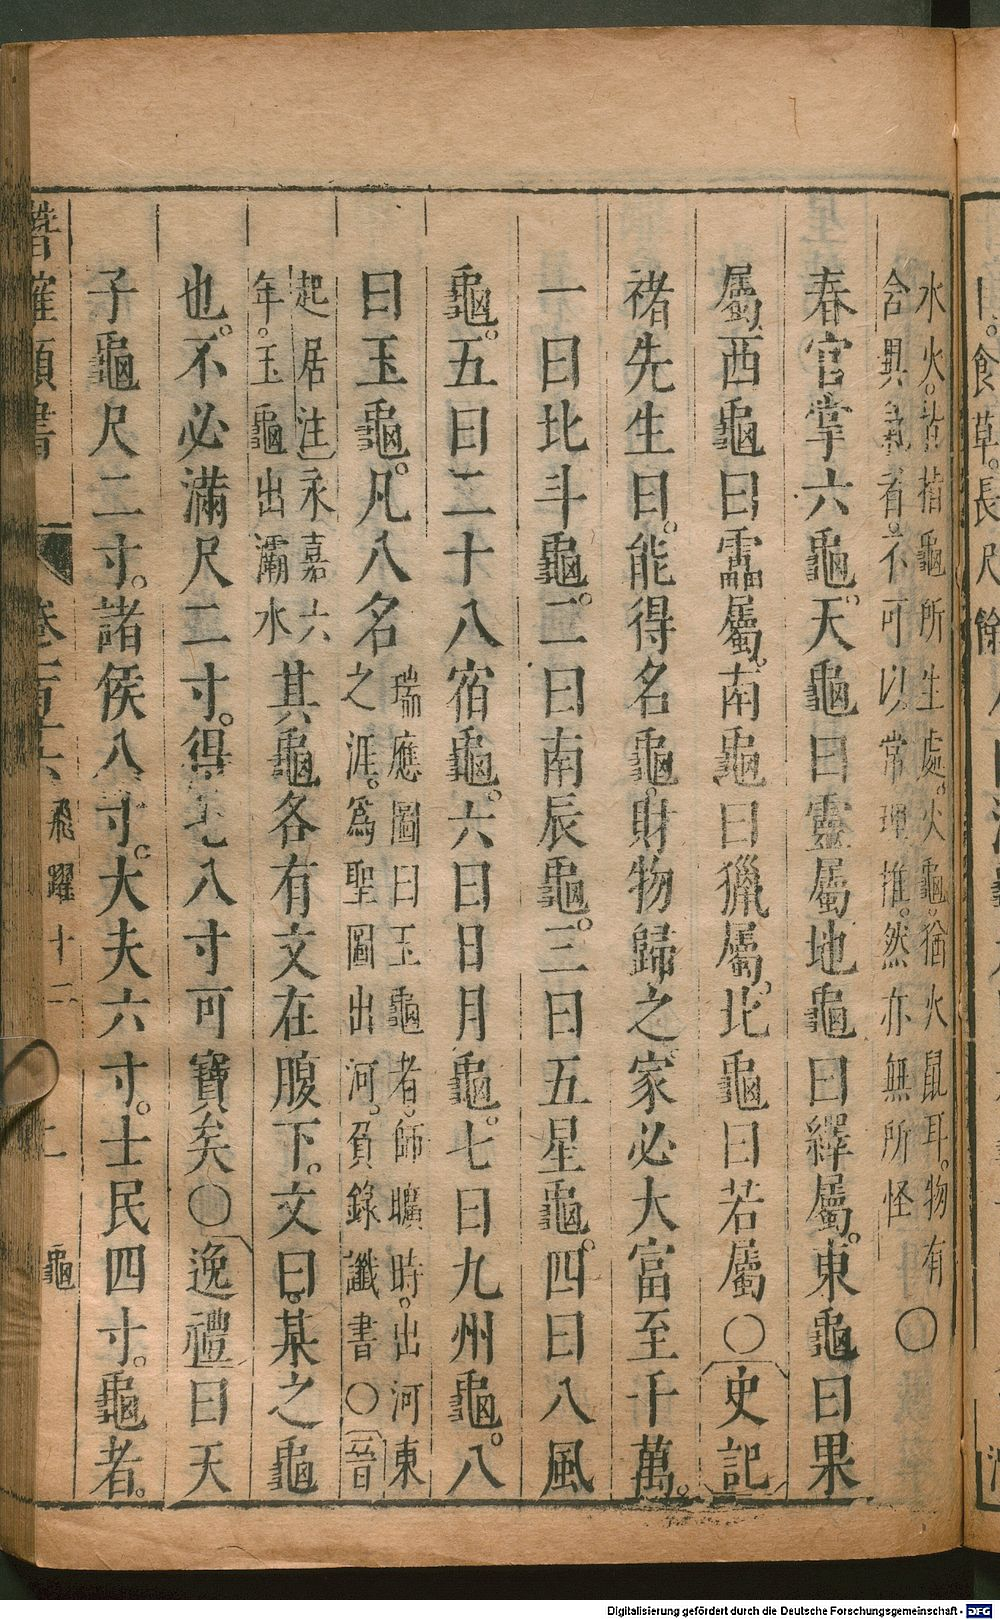 水火。詀指龜所生處。火龜猶火鼠耳。物有
含異氣者。不可以常理推。然亦無所怪
○
春官掌六龜。天龜曰靈屬地龜曰繹屬。東龜曰果
屬西龜曰靁屬。南龜曰獵屬。北龜曰若屬○史記
禇先生曰。能得名龜。財物歸之家必大富至千萬。
一曰北斗龜。二曰南辰龜。三曰五星龜。四曰八風
龜。五曰二十八宿龜。六曰日月龜。七曰九州龜。八
曰玉龜。凡八名
瑞應圖曰玉龜者。師曠時。出河東
之涯。爲聖圖出河。負錄讖書○晉
起居注永嘉六
年。玉龜出灞水
其龜各有文在腹下。文曰。某之龜
也。不必滿尺二寸。得七八寸可寶矣○逸禮曰天
子龜尺二寸。諸侯八寸。大夫六寸。士民四寸。龜者。
潛確類書 卷一百十六 飛躍十二 龜
食草。長尺餘
Digitalisierung gefördert durch die Deutsche Forschungsgemeinschaft - DFG